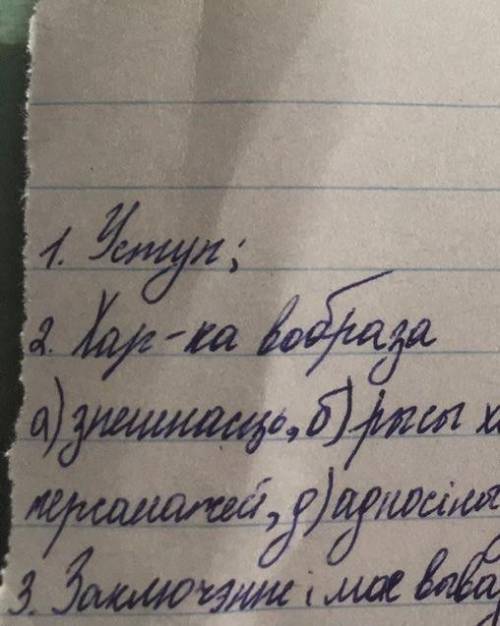 1. Уступ;
2. Хар-ка вобраза
а) знешнасць, б) рысы
персанажей, д) адносіны
3. Заключэнне і мае